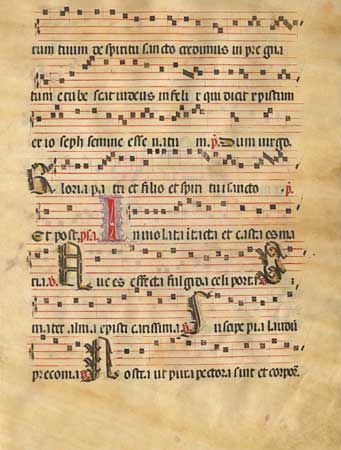 tum tuum de spiritu sancto credimus in pre gna
tum erube scat iudeus infeli x qui dicit xpistum
et io seph semine esse natu m. ℣. Dum virgo.
Gloria pa tri et filio et spiri tui sancto. ℣.
Et post. psa. I nviolata itacta et casta es ma
ria. ℣. Que es effecta fulgida celi porta. O
mater alma xpisti carissima ℣. Suscipe pia laudū
preconia ℣. Nostra ut pura pectora sint et corpor